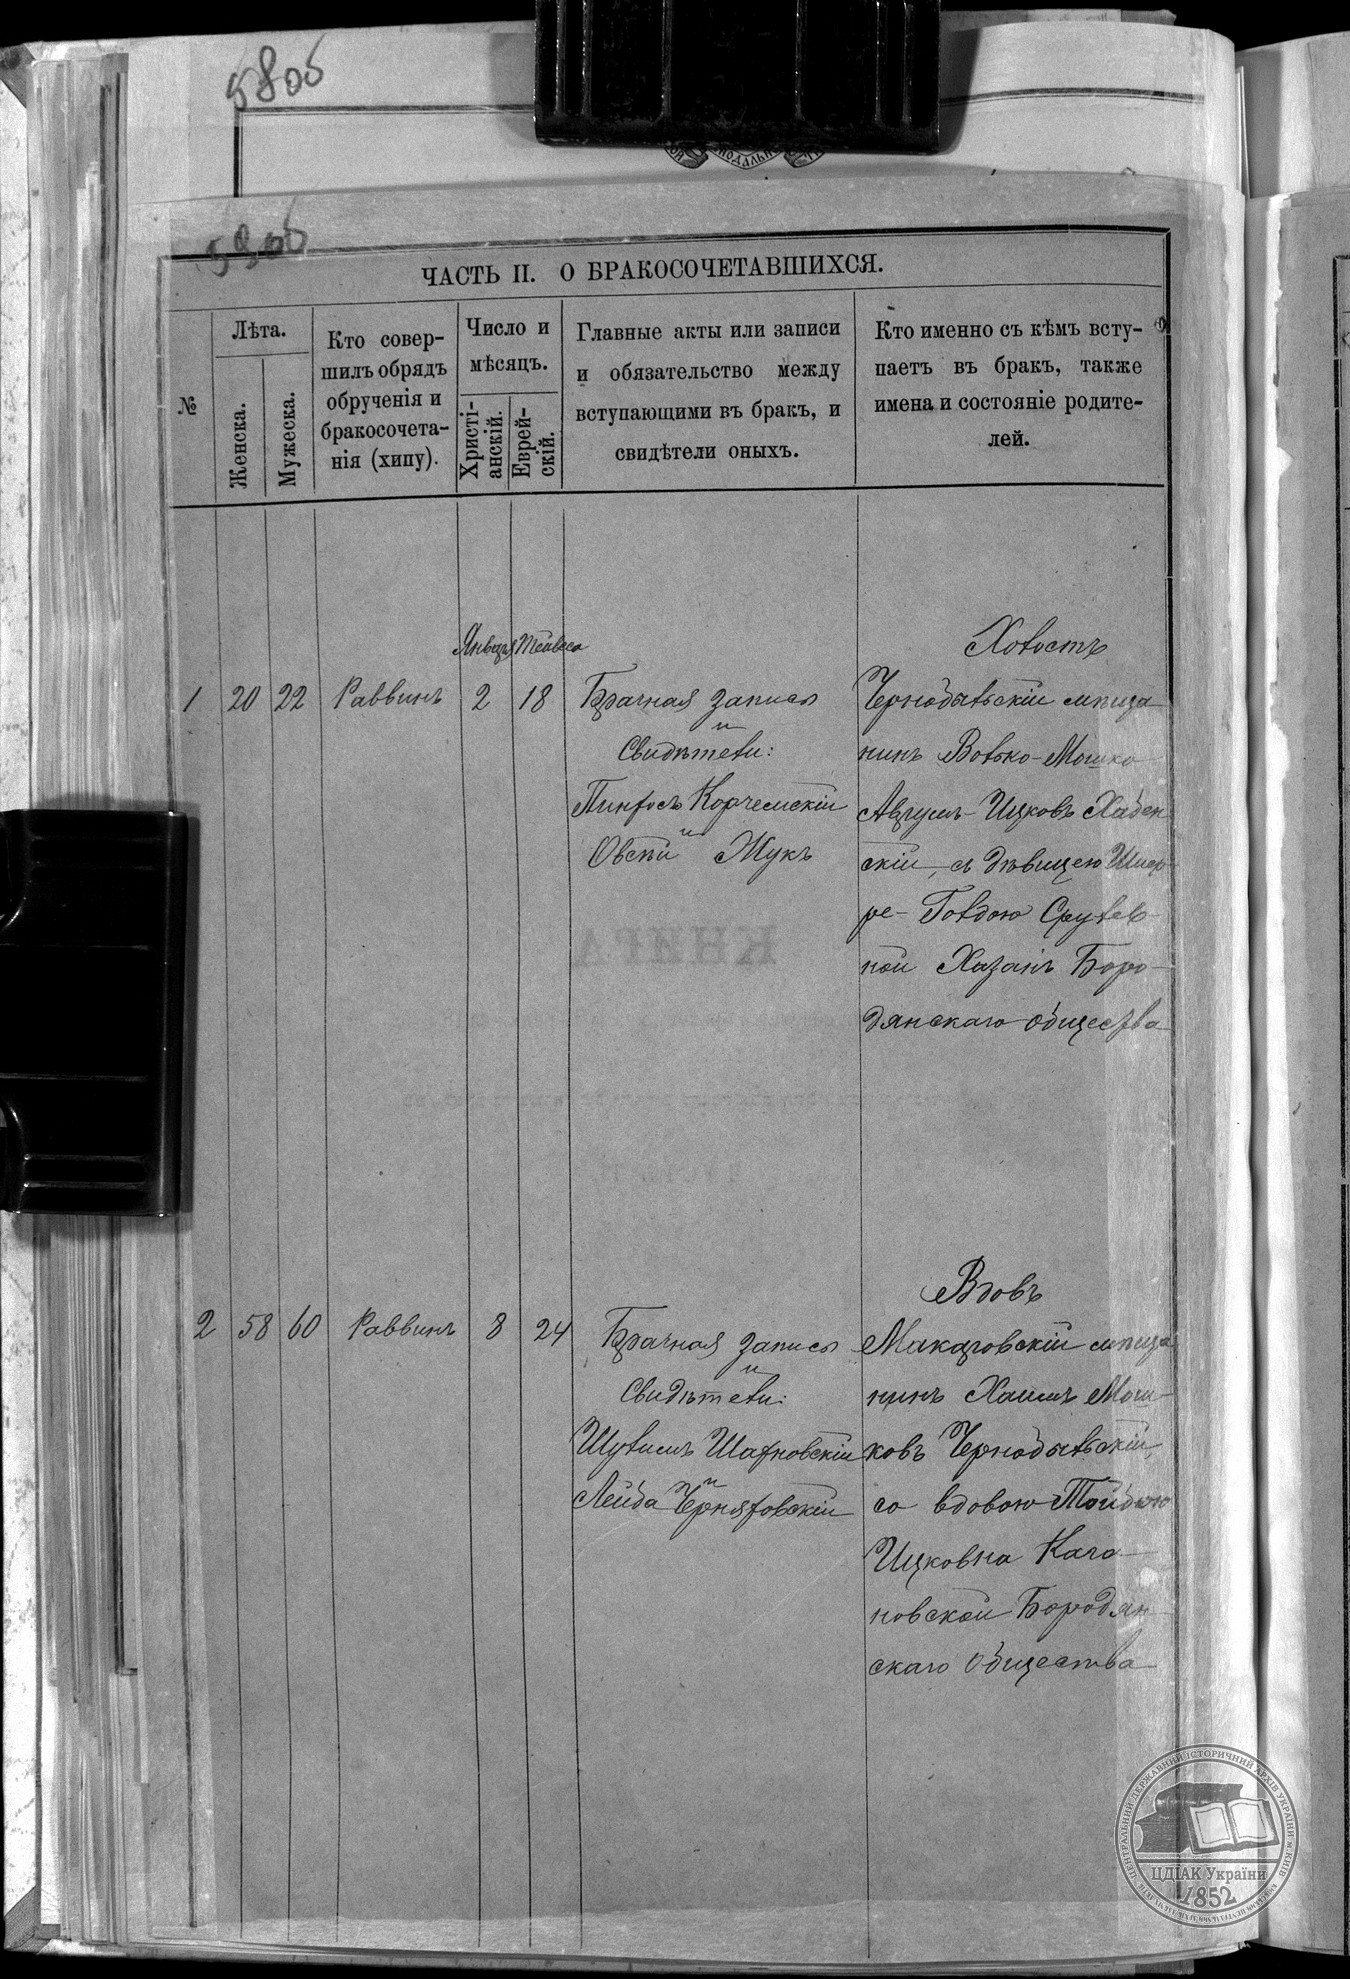 5806
5806
ЧАСТЬ II. О БРАКОСОЧЕТАВШИХСЯ.
№
Лѣта.
Женска.
Мужеска.
Кто совер-
шилъ обрядъ
обрученія и
бракосочета-
нія (хипу).
Число и
мѣсяцъ.
Христі-
анскій.
Еврей-
скій.
Главные акты или записи
и обязательство между
вступающими въ бракъ, и
свидѣтели оныхъ.
Кто именно съ кѣмъ всту-
паетъ въ бракъ, также
имена и состояніе родите-
лей.
Января Тейвеса
1 20 22 Раввинъ 2 18
Брачная запись
и
Свидѣтели:
Корчемскій
и
Овсѣй Жукъ
Холостъ
Чернобыльскій мѣща
нинъ Волько-Мошко
Ицковъ Хабен
скій, съ дѣвицею
ре-Голдою Срулев-
ной Хазанъ Боро-
дянскаго общества
2 58 60 Раввинъ 8 24
Брачная запись
и
Свидѣтели:
Шулимъ
и
Лейба Черняховскій
Вдовъ
Макаровскій мѣща
нинъ Хаимъ Мош-
ковъ Чернобыльскій,
со вдовою
Ицковна Кага-
новской Бородян-
скаго общества
ЦЕНТРАЛЬНИЙ ДЕРЖАВНИЙ ІСТОРИЧНИЙ АРХІВ УКРАЇНИ М.КИЇВ
ЦДІАК України
1852